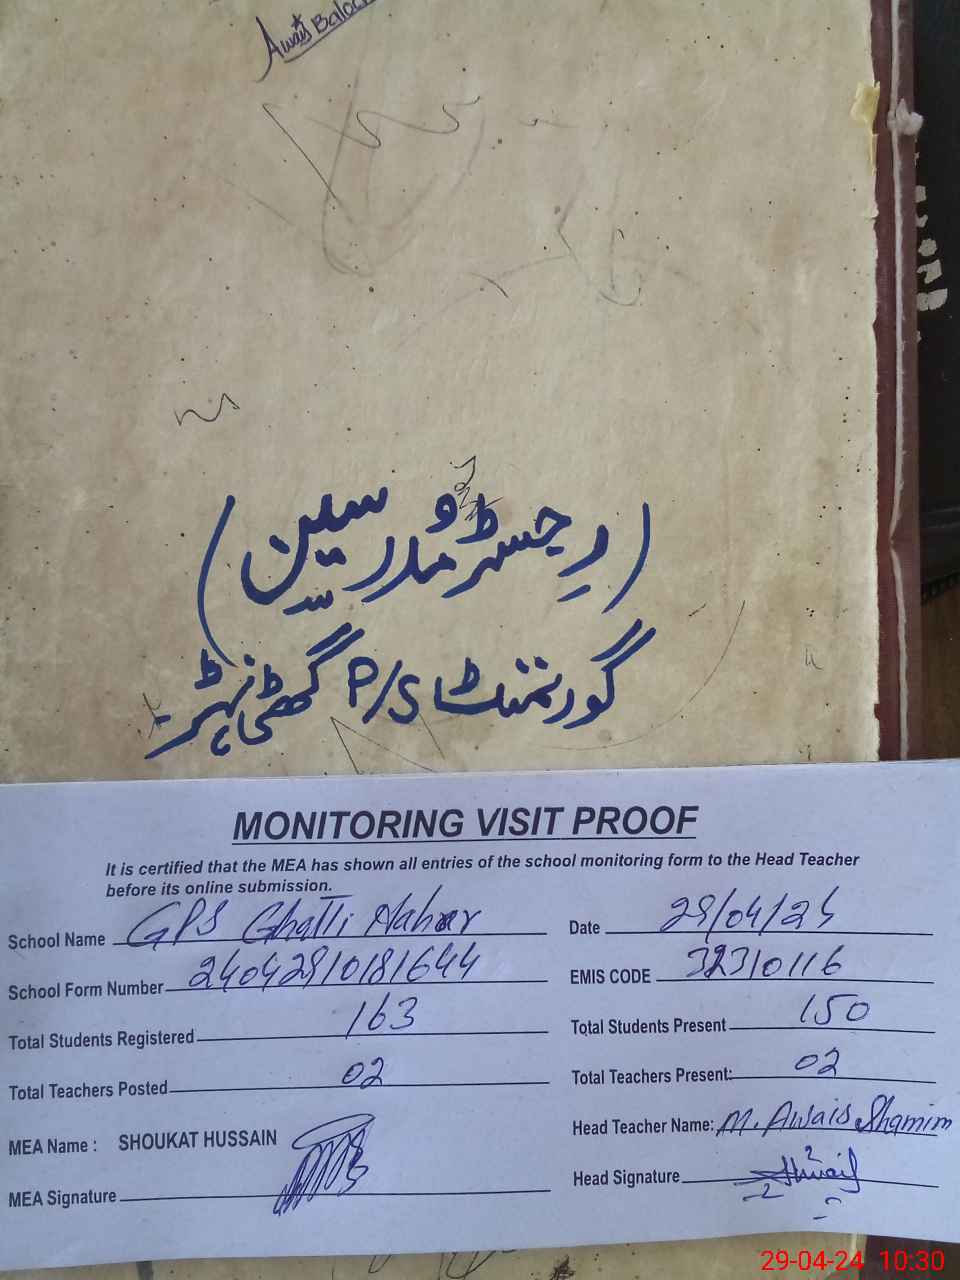 Awais Baloch
(رجسٹر و مدرسین)
گورنمنٹ P/S گھٹی نہڑ۔
MONITORING VISIT PROOF
It is certified that the MEA has shown all entries of the school monitoring form to the Head Teacher
before its online submission.
School Name GPS Ghatti Nahar Date 29/04/24
School Form Number 24042910181644 EMIS CODE 32310116
Total Students Registered 163 Total Students Present 150
Total Teachers Posted 02 Total Teachers Present: 02
MEA Name : SHOUKAT HUSSAIN Head Teacher Name: M. Awais Shamim
MEA Signature Head Signature
29-04-24 10:30